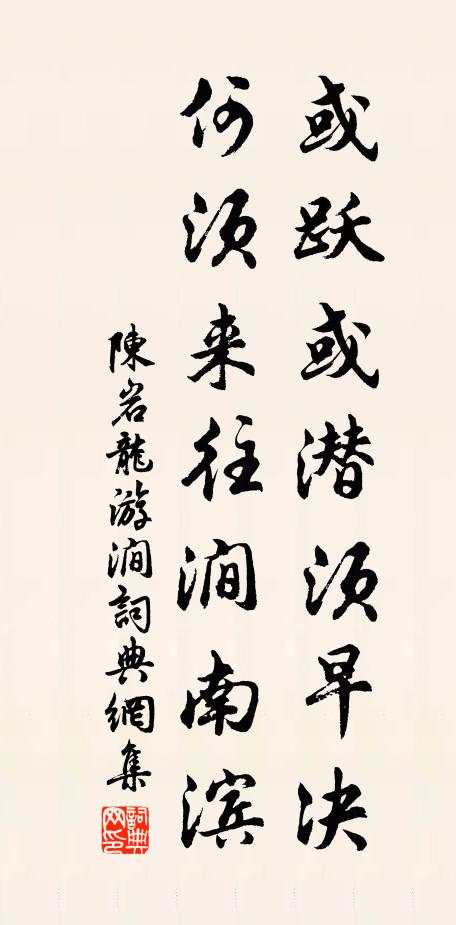 或跃或潜须早决
何须来往涧南滨
陳岩龍游澗詞典網集
詞典网印